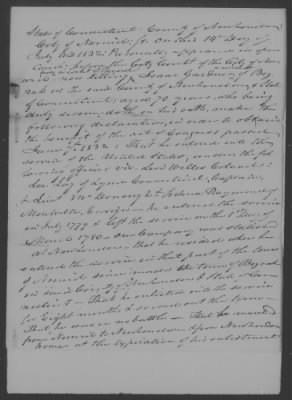 State of Connecticut County of New London
City of Norwich, ss. On this 14th Day of
July AD 1832 Personally appeared in open
Court before the City Court of the City of Nor-
wich now sitting Isaac Gardner of Boz-
rah in the said County of New London & State
of Connecticut, aged 70 years, who being
duly sworn, doth on his oath, make the
following declaration, in order to obtain
the benefit of the act of Congress passed
June 7th 1832, That he entered into the
service of the United States, under the fol-
lowing officers viz. Levi Wells Colonel
Lee Day of Lyme Connecticut, Captain,
& Lieut. & Joshua Raymond of
Montville, Ensign he entered the service
in July 1779 & left the service on the 1st Day of
March 1780 - Our Company was stationed
at New London - That he resided when he
entered the service in that part of the Town
of Norwich since made the town of Bozrah
in said County of New London & State of Con-
necticut - That he enlisted into the service
for Eight months & served out the time -
That he was in no battle - That he marched
from Norwich to New London & from New London
home at the Expiration of his enlistment